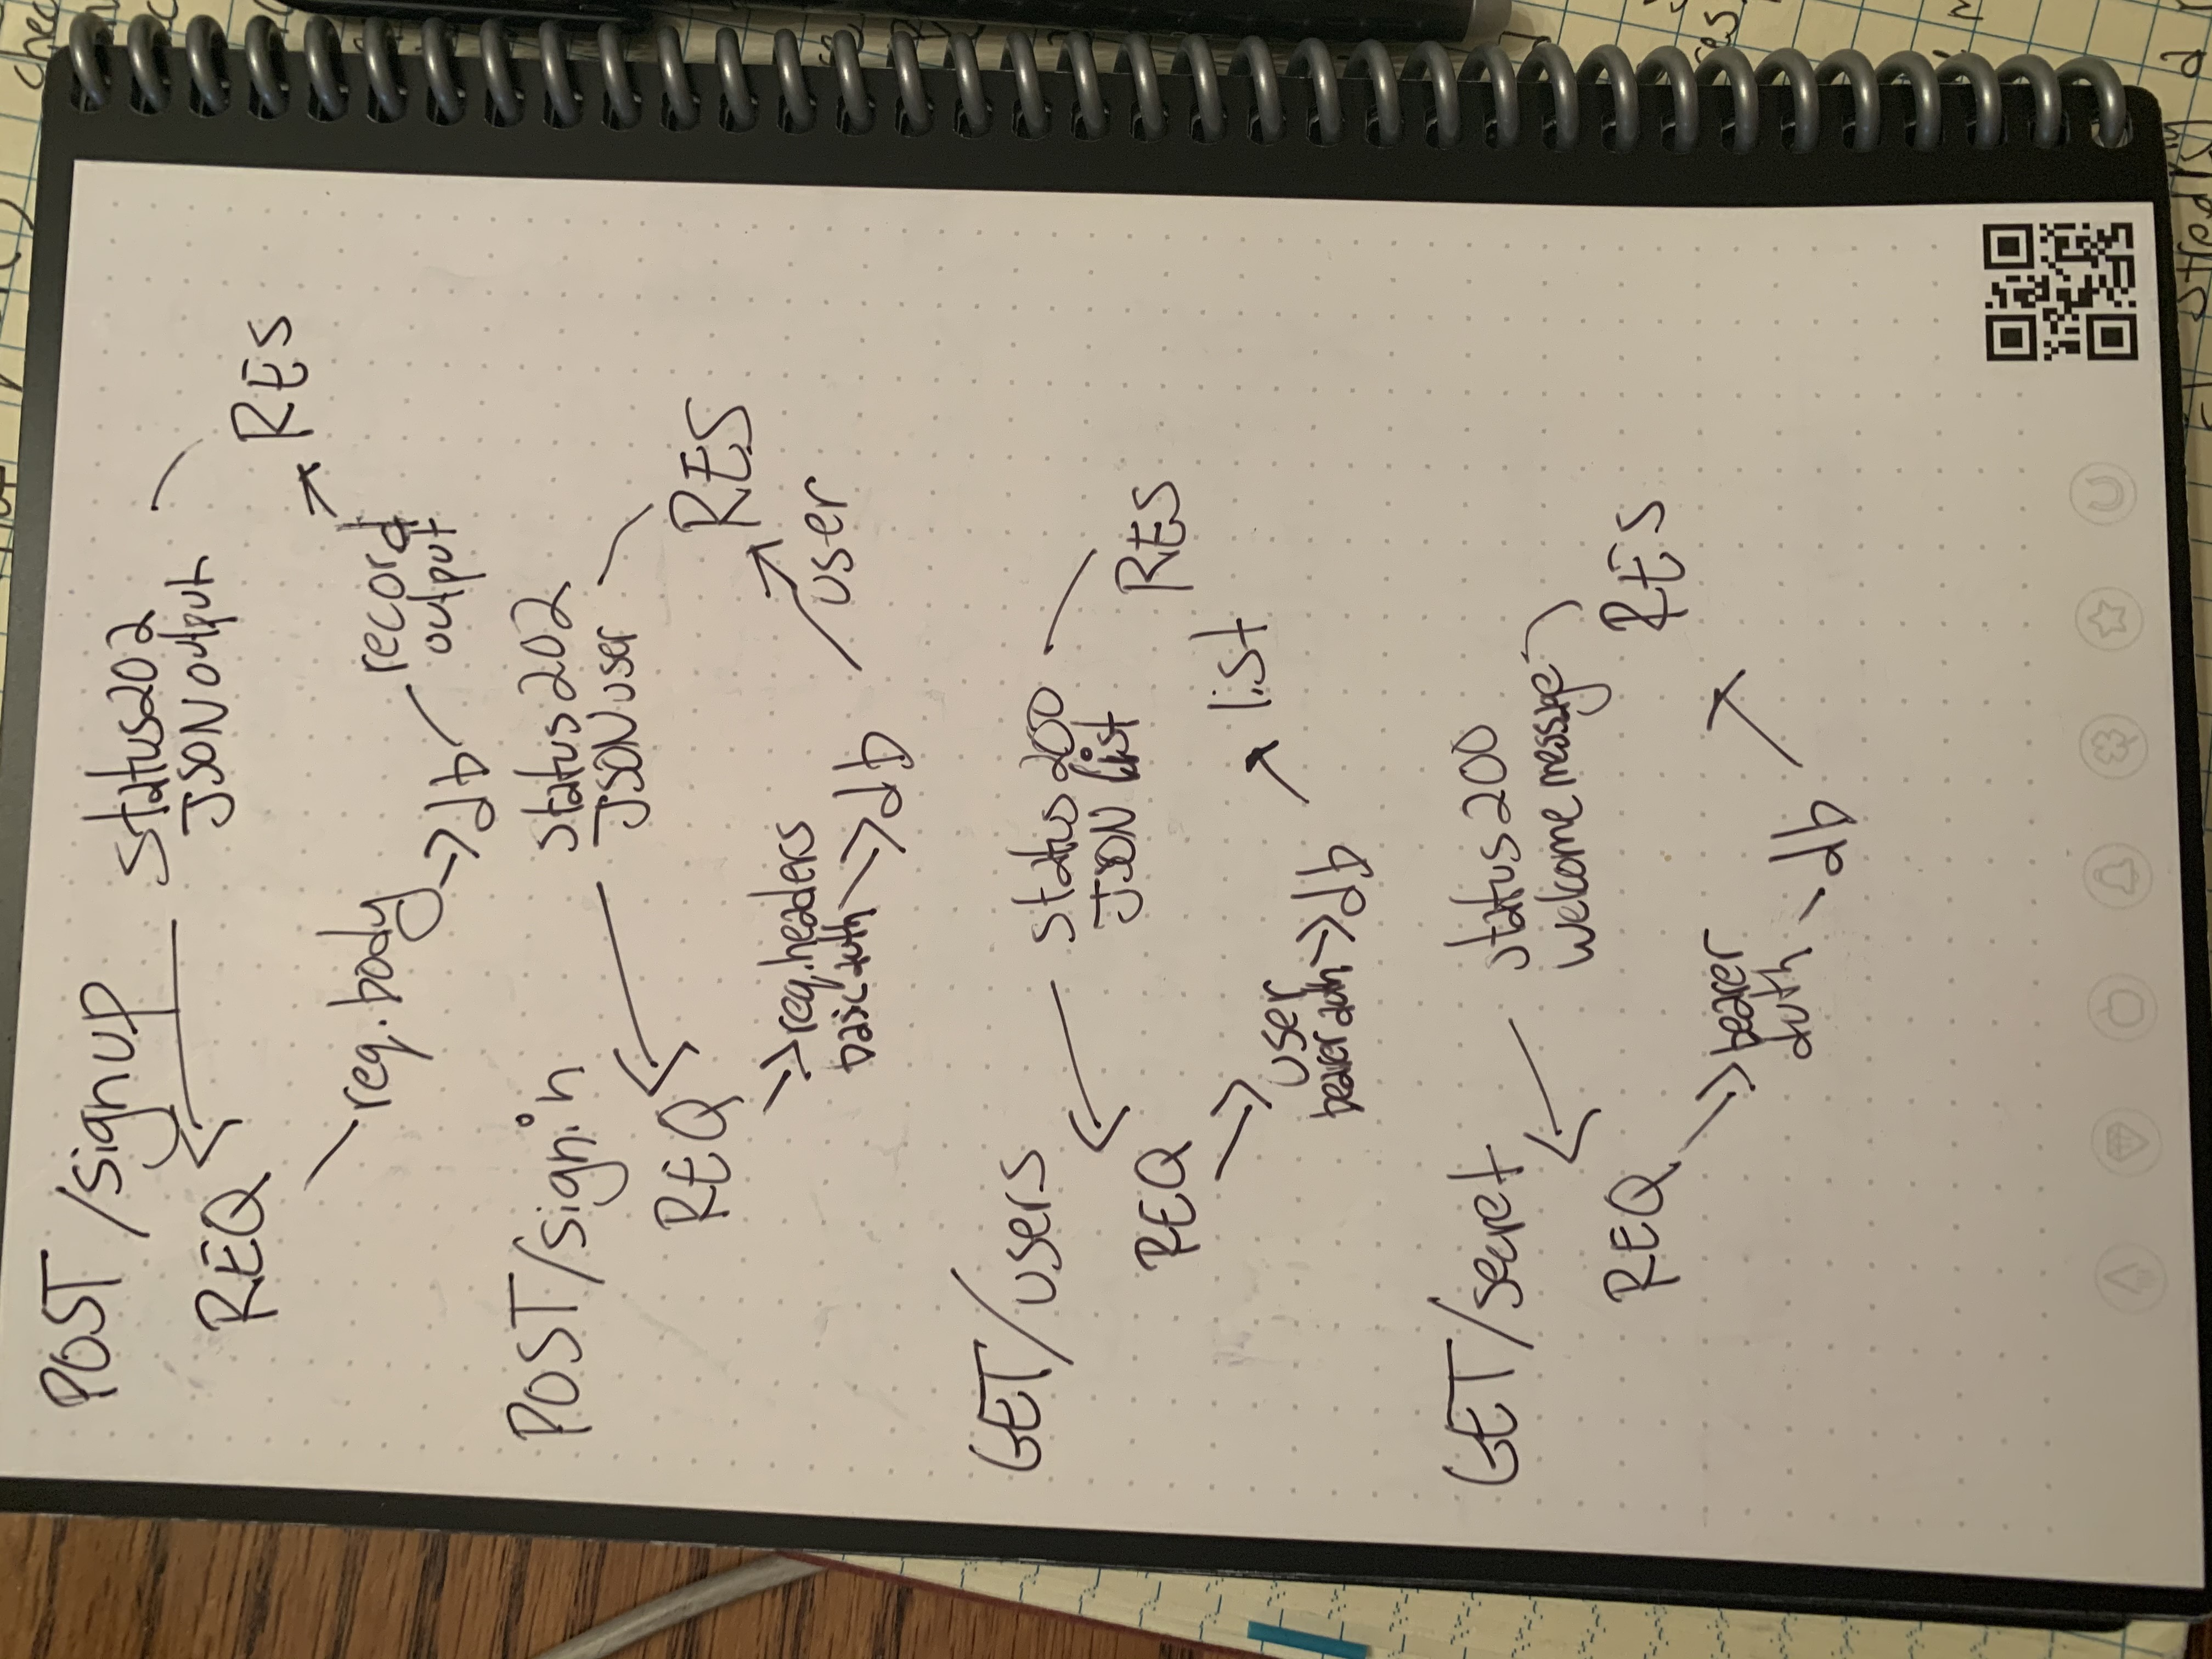 POST /signup
status 202
JSON output
REQ
RES
req.body
record
output
db
POST/signin
status 202
JSON user
REQ
RES
req.headers
basic auth
db
user
GET/users
status 200
JSON list
REQ
RES
list
user
bearer auth
db
GET/secret
status 200
welcome message
REQ
RES
bearer
auth
db